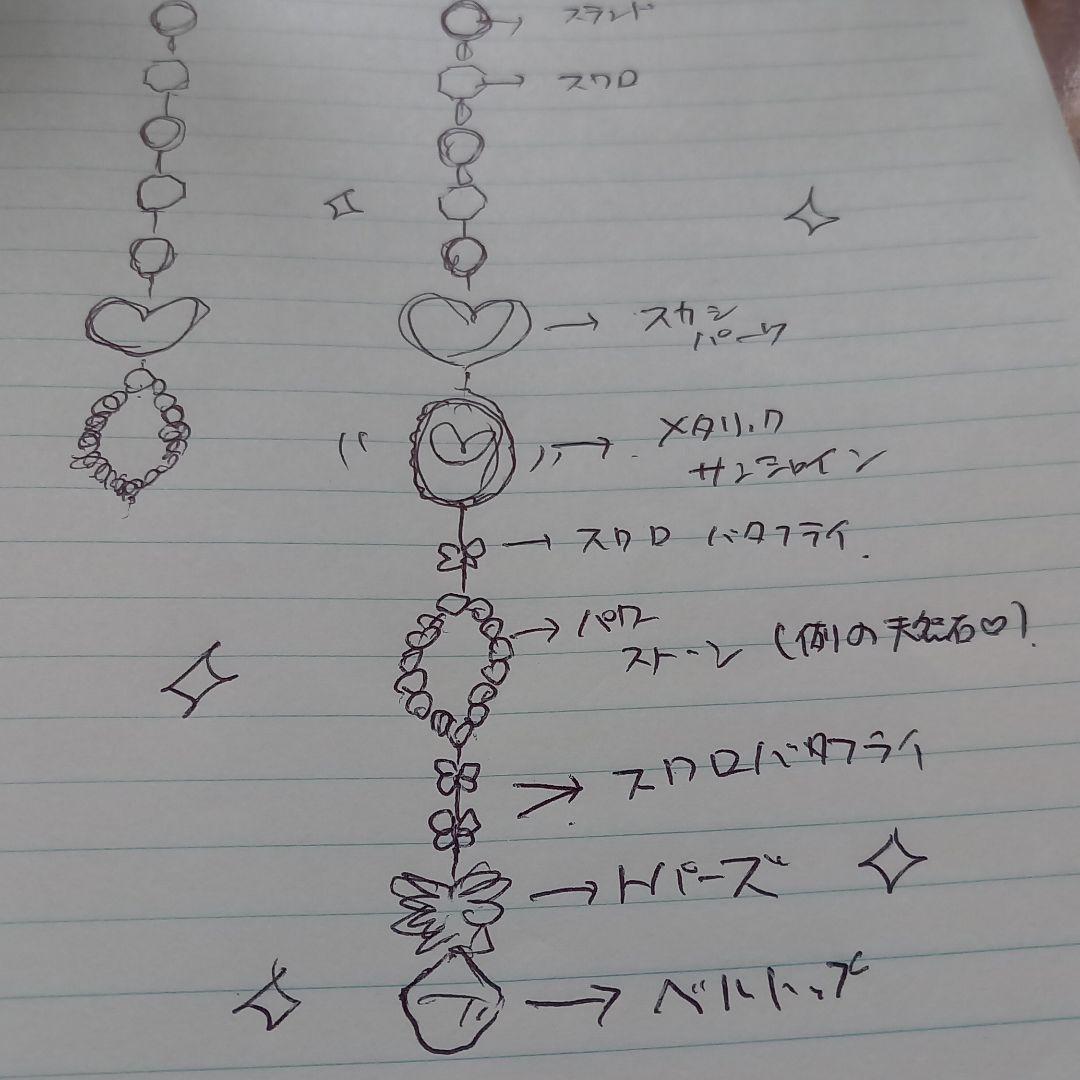 スランド
スワロ
スカシ
パーツ
メタリック
サンシャイン
スワロ バタフライ.
パワー
ストーン (例の天然石♡).
スワロバタフライ
トパーズ
ベルトップ